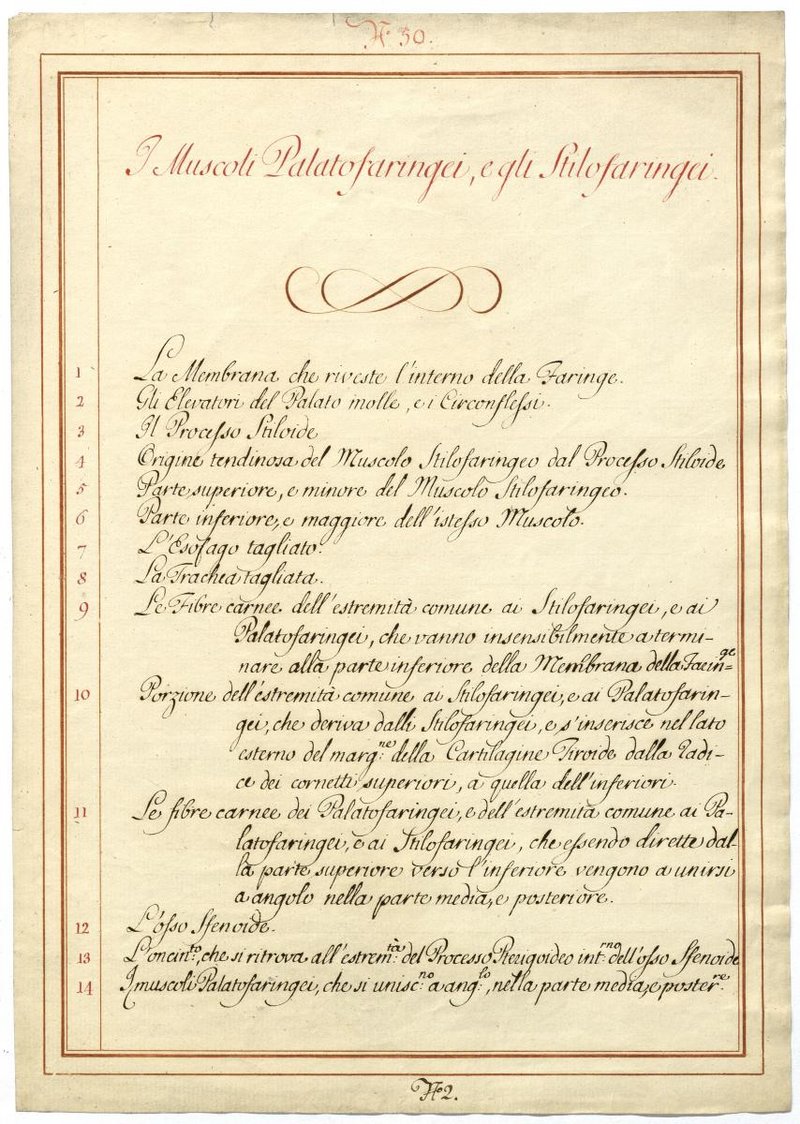 N. 30.
I Muscoli Palatofaringei, e gli Stilofaringei.
1 La Membrana che riveste l'interno della Faringe.
2 Gli Elevatori del Palato molle, e i Circonflessi.
3 Il Processo Stiloide
4 Origine tendinosa del Muscolo Stilofaringeo dal Processo Stiloide
5 Parte superiore, e minore del Muscolo Stilofaringeo.
6 Parte inferiore, e maggiore dell'istesso Muscolo.
7 L'Esofago tagliato.
8 La Trachea tagliata.
9 Le Fibre carnee dell'estremità comune ai Stilofaringei, e ai
Palatofaringei, che vanno insensibilmente a termi-
nare alla parte inferiore della Membrana della
10 Porzione dell'estremità comune ai Stilofaringei, e ai Palatofarin-
gei, che deriva dalli Stilofaringei, e s'inserisce nel lato
esterno del marg:ne della Cartilagine Tiroide dalla radi-
ce dei cornetti superiori, a quella dell'inferiori.
11 Le fibre carnee dei Palatofaringei, e dell'estremità comune ai Pa-
latofaringei, e ai Stilofaringei, che essendo dirette dal-
la parte superiore verso l'inferiore vengono a unirsi
a angolo nella parte media, e posteriore.
12 L'osso Sfenoide.
13 L'oncin:to, che si ritrova all'estrem:tà del Processo Pterigoideo int:rno dell'osso Sfenoide
14 I muscoli Palatofaringei, che si unisc:no a ang:lo, nella parte media, e poster:re
N2.